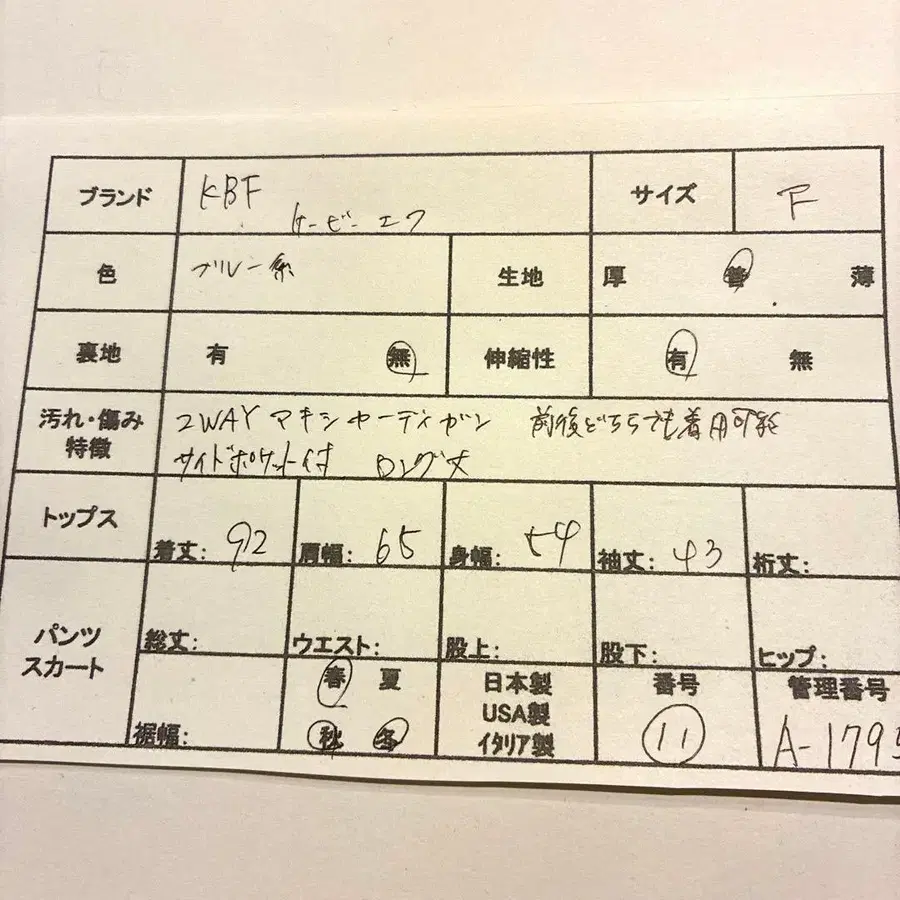 ブランド KBF サイズ F
ケービーエフ
色 ブルー系 生地 厚 普 薄
裏地 有 無 伸縮性 有 無
汚れ・傷み 2WAY マキシカーディガン 前後どちらでも着用可能
特徴 サイドポケット付 ロング丈
トップス 着丈: 92 肩幅: 65 身幅: 54 袖丈: 43 裄丈:
パンツ 総丈: ウエスト: 股上: 股下: ヒップ:
スカート
裾幅: 春 夏 日本製 番号 管理番号
USA製
秋 冬 イタリア製 11 A-1795